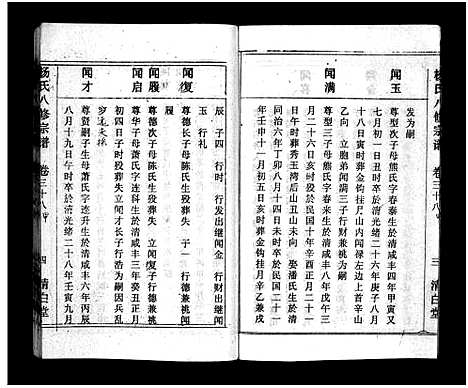 杨氏八修宗谱 卷三十八 三 清白堂
发为嗣
闻玉
尊型次子母熊氏字春泰生於清咸丰四年甲寅又
七月初一日丑时卒於清光绪二十六年庚子八月
十七日亥时葬金钩挂尺山内闻禄左边上首辛山
乙向 立胞弟闻满三子行财兼桃为嗣
闻满
尊型三子母熊氏字寿生於清咸丰八年戊午三
月二十六日亥时卒於民国十年辛酉二月二十一
日午时葬秀玉湾后山丑山未向 娶潘氏生於清
同治六年丁卯八月十四日未时卒於民国二十一
年壬申十一月初五日亥时葬金钩挂月形辛乙兼戌
辰 子四 行时 行发出继闻金 行财出继闻
玉 行礼
闻复
尊德长子母陈氏生殁葬失 子一 行德兼桃闻
履
闻履
尊德次子母陈氏生殁葬失 立闻复子行德兼桃
闻启
尊华子母萧氏字连科生於清咸丰三年癸丑正月
初四日子时殁失 立闻才长子行浩为嗣因兵乱
闻才
尊贤嗣子母萧氏字连升生於清咸丰六年丙辰
八月十九日午时卒於清光绪二十八年壬寅九月
杨氏八修宗谱 卷三十八 四 清白堂